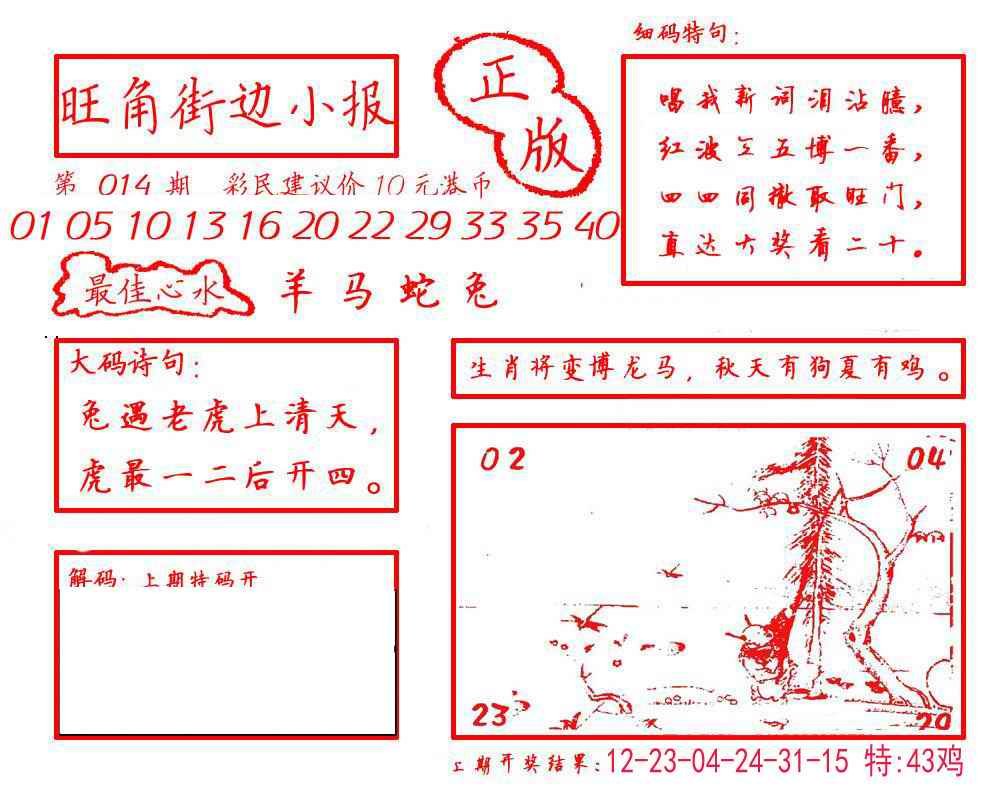 细码特句:
旺角街边小报
正版
唱我新词泪沾臆,
红波 五博一番,
四四同撤取旺门,
直达大奖看二十。
第 014 期 彩民建议价 10 元港币
01 05 10 13 16 20 22 29 33 35 40
最佳心水 羊马蛇兔
大码诗句:
兔遇老虎上清天,
虎最一二后开四。
生肖将变博龙马, 秋天有狗夏有鸡。
02
04
23
20
解码· 上期特码开
上期开奖结果:12-23-04-24-31-15 特:43鸡